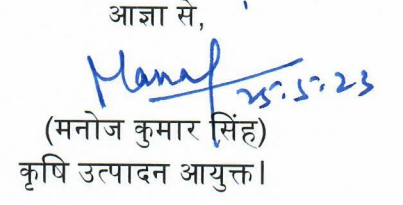 आज्ञा से,
Manoj 25.5.23
(मनोज कुमार सिंह)
कृषि उत्पादन आयुक्त।